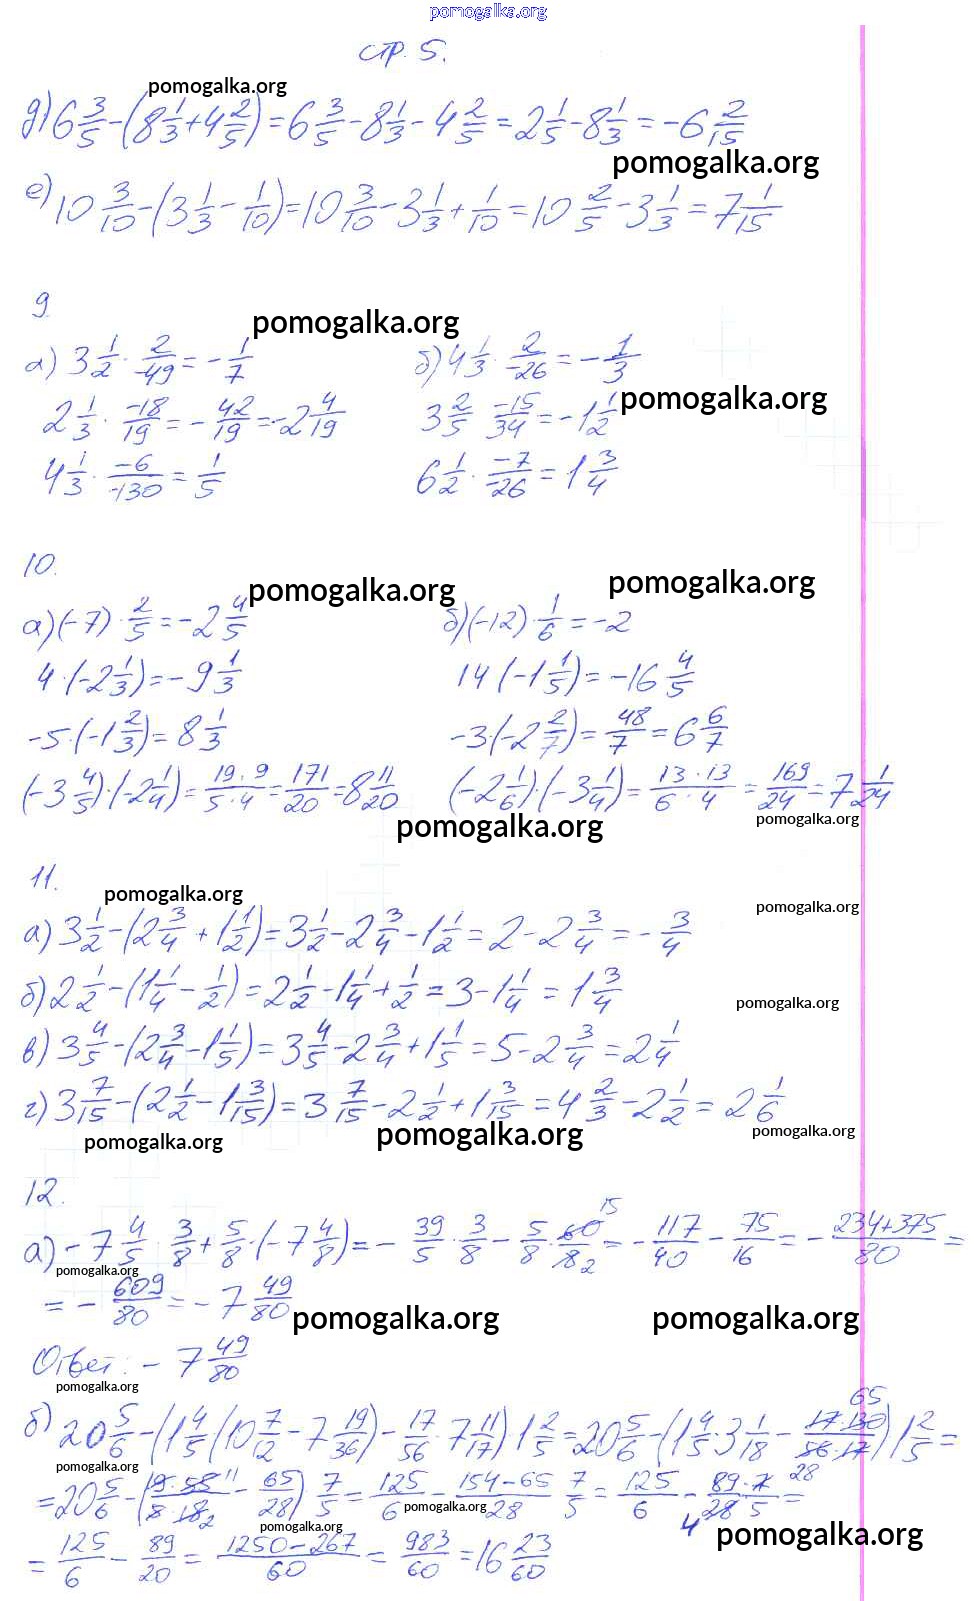 pomogalka.org
стр. 5.
pomogalka.org
д) 6 3/5 - (8 1/3 + 4 2/5) = 6 3/5 - 8 1/3 - 4 2/5 = 2 1/5 - 8 1/3 = -6 2/15
pomogalka.org
е) 10 3/10 - (3 1/3 - 1/10) = 10 3/10 - 3 1/3 + 1/10 = 10 2/5 - 3 1/3 = 7 1/15
9
pomogalka.org
а) 3 1/2 · 2/-49 = - 1/7 б) 4 1/3 · 2/-26 = - 1/3
pomogalka.org
2 1/3 · -18/19 = - 42/19 = -2 4/19 3 2/5 · -15/34 = -1 1/2
4 1/3 · -6/-130 = 1/5 6 1/2 · -7/-26 = 1 3/4
10.
pomogalka.org pomogalka.org
а) (-7) · 2/5 = -2 4/5 б) (-12) · 1/6 = -2
4 · (-2 1/3) = -9 1/3 14 (-1 1/5) = -16 4/5
-5 · (-1 2/3) = 8 1/3 -3 · (-2 2/7) = 48/7 = 6 6/7
(-3 4/5) · (-2 1/4) = 19 · 9/5 · 4 = 171/20 = 8 11/20 (-2 1/6) · (-3 1/4) = 13 · 13/6 · 4 = 169/24 = 7 1/24
pomogalka.org pomogalka.org
11.
pomogalka.org pomogalka.org
а) 3 1/2 - (2 3/4 + 1 1/2) = 3 1/2 - 2 3/4 - 1 1/2 = 2 - 2 3/4 = - 3/4
б) 2 1/2 - (1 1/4 - 1/2) = 2 1/2 - 1 1/4 + 1/2 = 3 - 1 1/4 = 1 3/4
pomogalka.org
в) 3 4/5 - (2 3/4 - 1 1/5) = 3 4/5 - 2 3/4 + 1 1/5 = 5 - 2 3/4 = 2 1/4
г) 3 7/15 - (2 1/2 - 1 3/15) = 3 7/15 - 2 1/2 + 1 3/15 = 4 2/3 - 2 1/2 = 2 1/6
pomogalka.org pomogalka.org pomogalka.org
12.
а) -7 4/5 · 3/8 + 5/8 · (-7 4/8) = - 39/5 · 3/8 - 5/8 · 60 15/8 2 = - 117/40 - 75/16 = - 234+375/80 =
pomogalka.org
= - 609/80 = - 7 49/80
pomogalka.org pomogalka.org
Ответ: - 7 49/80
pomogalka.org
б) 20 5/6 - (1 4/5 (10 7/12 - 7 19/36) - 17/56 · 7 11/17) 1 2/5 = 20 5/6 - (1 4/5 · 3 1/18 - 17 · 130 65/56 · 17) 1 2/5 =
pomogalka.org
= 20 5/6 - (9 · 55 11/8 · 18 2 - 65/28) · 7/5 = 125/6 - 154-65/28 · 7/5 = 125/6 - 89 · 7/28 4 · 5 = 28
pomogalka.org
pomogalka.org pomogalka.org
= 125/6 - 89/20 = 1250-267/60 = 983/60 = 16 23/60